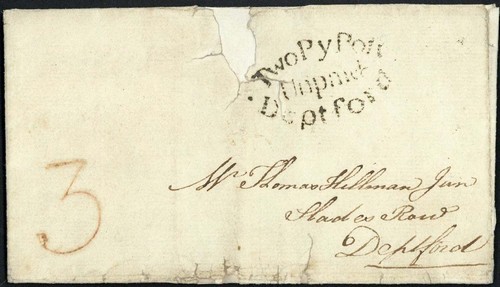 Two Py Post
Unpaid
Deptford
3
Mr. Thomas Hillman Jun
Slades Row
Deptford